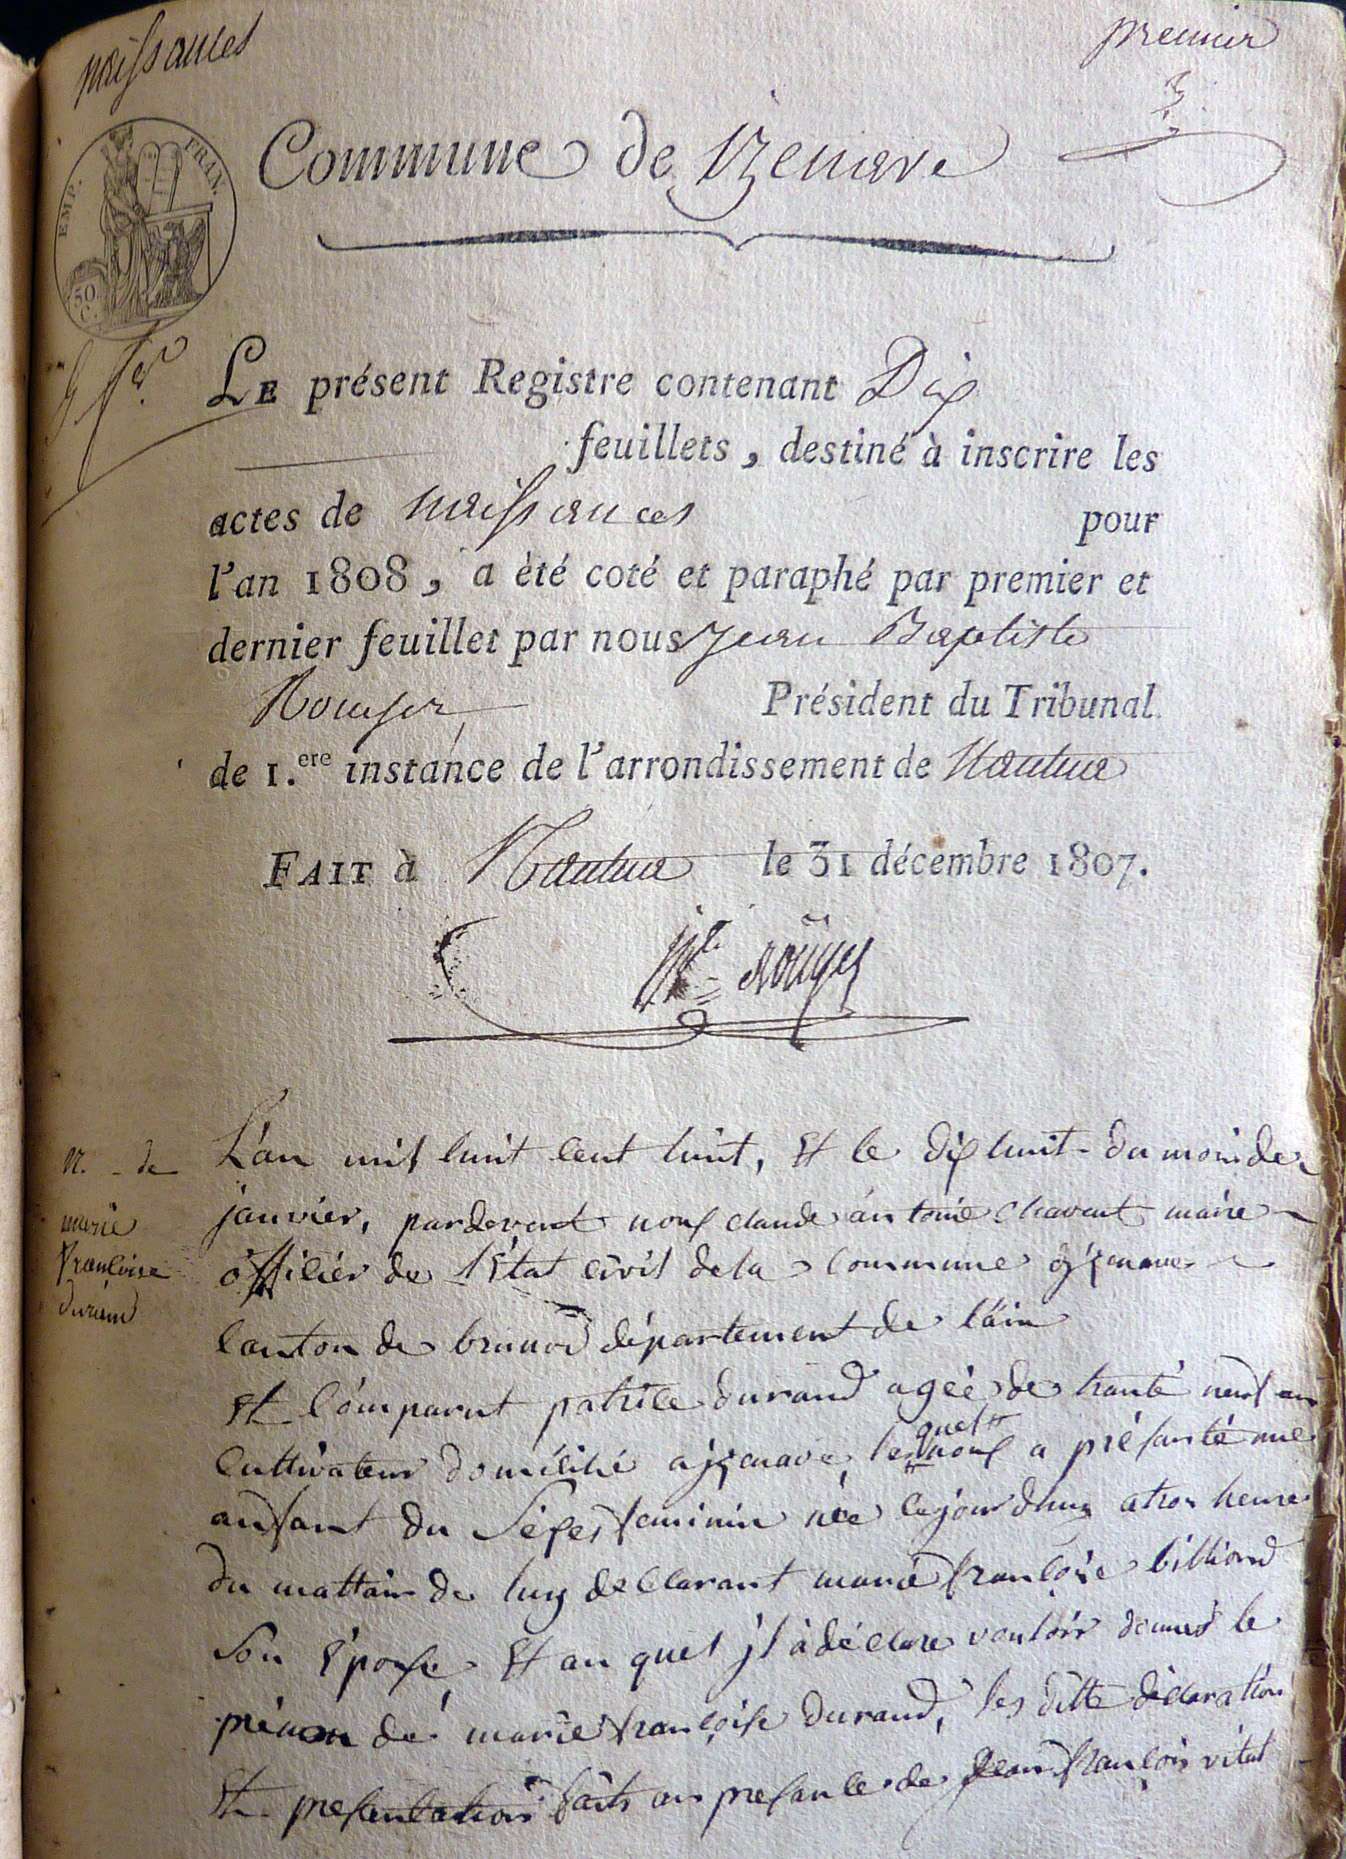 naissances
premier
EMP. FRAN.
50 C.
Commune de Izenave
LE présent Registre contenant Dix
feuillets, destiné à inscrire les
actes de naissances pour
l'an 1808, a èté coté et paraphé par premier et
dernier feuillet par nous Jean Baptiste
Rouyer Président du Tribunal
de 1.ere instance de l'arrondissement de Nantua
FAIT à Nantua le 31 décembre 1807.
Rouyer
N. de
marie
francoise
durand
L'an mil huit cent huit, Et le dix huit du mois de
janvier, pardevant nous claude antoine chavent maire
officier de l'Etat civil de la commune d'izenave
canton de brénod département de l'ain
Et Comparut patrice durand agée de trante neuf ans
Cultivateur domicilié a jzenave, lequel nous a présanté une
anfant du Sexes feminin née cejourdhuy atroi heure
du mattain de luy declarant marie françoise billiond
Son Epouse Et au quel jl à déclaré vouloir donner le
prénom de marie françoise durand, les ditte déclaration
Et presentation faits an presance de jean françois vital